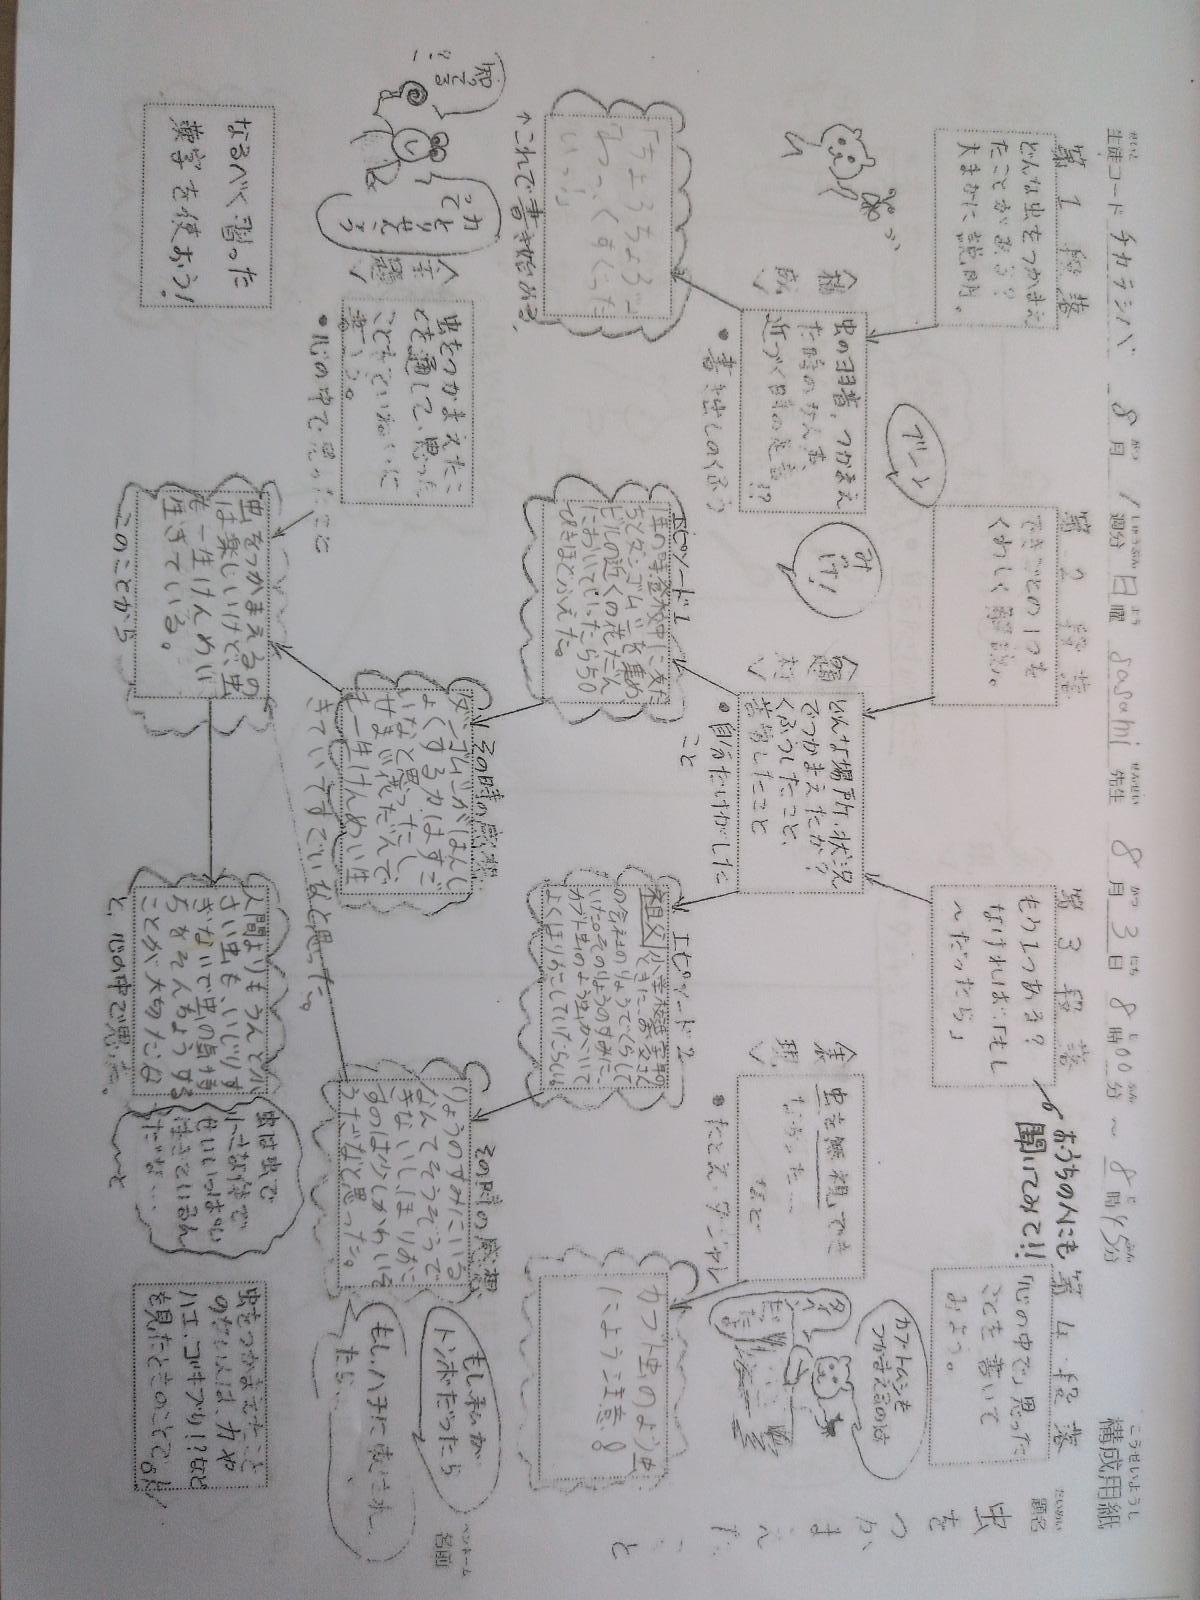 構成用紙
こうせいようし
生徒コード チカラシバ 8月1週分 日曜 sasami 先生 8月3日 8時00分～8時15分
題名
虫をつかまえたこと
ペンネーム
名前
第1段落
どんな虫をつかまえ
たことがある？
大まかに説明。
第2段落
できごとの1つを
くわしく解説。
第3段落
もう1つある？
なければ「もし
～だったら」
おうちの人にも
聞いてみて!!
第4段落
「心の中で」思った
ことを書いて
みよう。
ブーン
虫の羽音、つかまえ
近づく時の足音!?
•書き出しのくふう
みっけ！
どんな場所・状況
でつかまえたか？
くふうしたこと、
苦労したこと
•自分だけがした
こと
虫を無視でき
なかった…
など
•たとえ・ダジャレ
カブトムシを
つかまえるのは
「ちょろちょろ」
↑これで書き始める。
エピソード1
ちとダンゴムシを集め
ビルの近くの花だん
においていったら50
ぴきほどふえた。
エピソード2
祖父
よくほりおこしていたらしい
カブト虫のよう虫
によう注意！
知ってる？
虫をつかまえたこ
とを通して、思った
•心の中で思ったこと
その時の感想
ダンゴムシがはんし
よくするかはすご
いなと思ったし、
せまい花だんで
も一生けんめい生
きていてすごいなと思った。
その時の感想
りょうのすみにいる
なんてそうぞうで
きないしほりおこ
すのは少しかわいそ
うだなと思った。
もし私が
トンボだったら
もし、ハチに刺され
たら…
なるべく習った
漢字を使おう！
虫をつかまえるの
は楽しいけど、虫
も一生けんめい
生きている。
このことから
人間よりもうんと小
さい虫も、いじりす
ぎないで虫の気持
ちをそんちょうする
ことが大切だな
と、心の中で思った。
虫は虫で
小さな体で
せいいっぱい
生きているん
だな…
～と
虫をつかまえたこと
のない人は、カや
ハエ、ゴキブリ!?など
を見たときのことでもOK